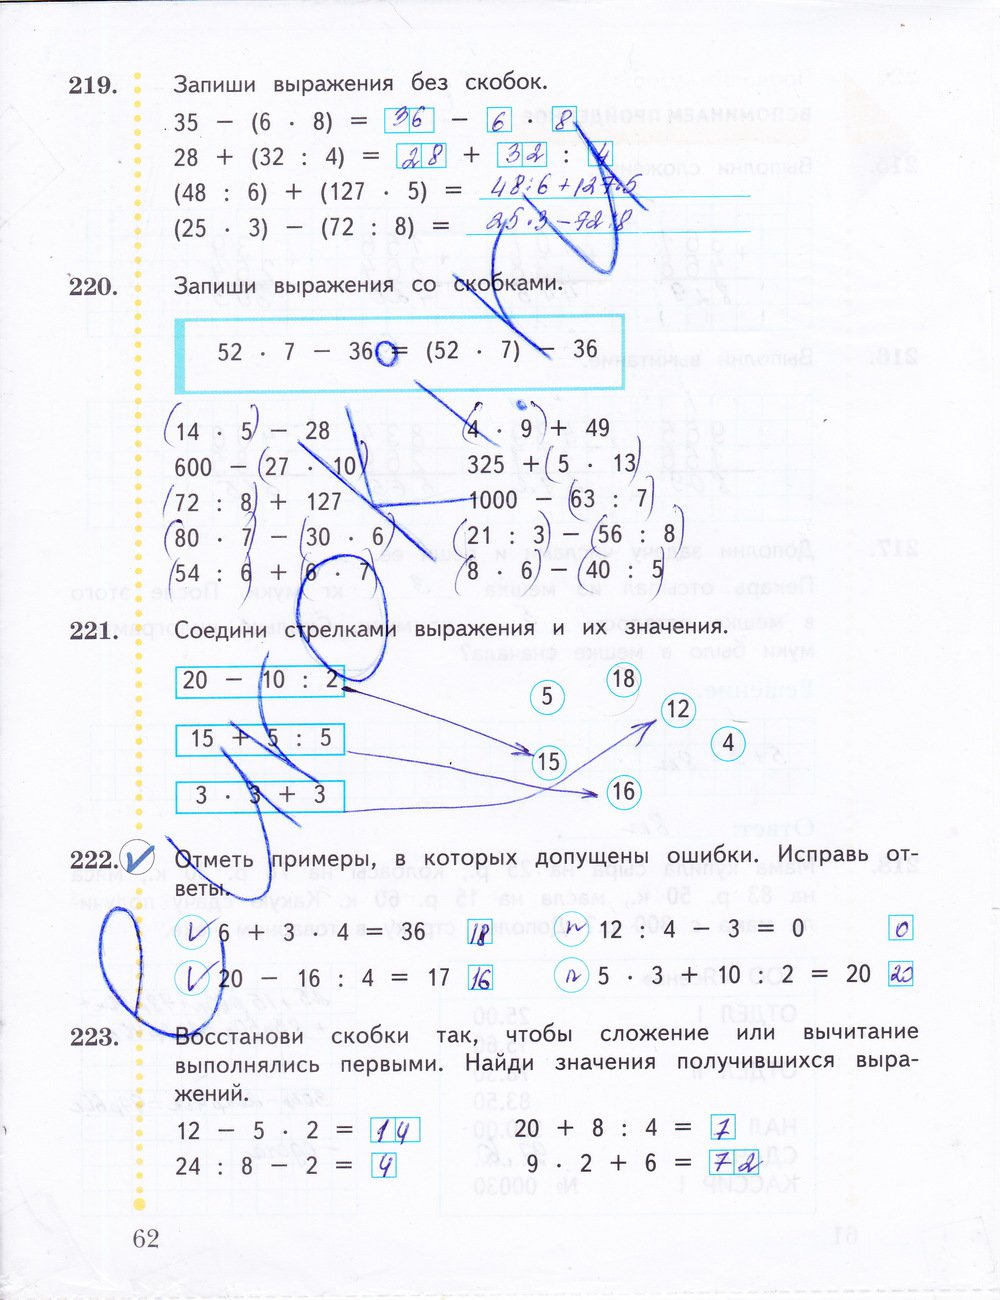 219. Запиши выражения без скобок.
35 − (6 · 8) = 36 − 6 · 8
28 + (32 : 4) = 28 + 32 : 4
(48 : 6) + (127 · 5) = 48:6+127·5
(25 · 3) − (72 : 8) = 25·3−72:8
220. Запиши выражения со скобками.
52 · 7 − 36 = (52 · 7) − 36
(14 · 5) − 28 (4 · 9) + 49
600 − (27 · 10) 325 + (5 · 13)
(72 : 8) + 127 1000 − (63 : 7)
(80 · 7) − (30 · 6) (21 : 3) − (56 : 8)
(54 : 6) + (6 · 7) (8 · 6) − (40 : 5)
221. Соедини стрелками выражения и их значения.
20 − 10 : 2 5 18
15 + 5 : 5 12 4
3 · 3 + 3 15 16
222. Отметь примеры, в которых допущены ошибки. Исправь от-
веты.
V 6 + 3 · 4 = 36 18 12 : 4 − 3 = 0 0
V 20 − 16 : 4 = 17 16 5 · 3 + 10 : 2 = 20 20
223. Восстанови скобки так, чтобы сложение или вычитание
выполнялись первыми. Найди значения получившихся выра-
жений.
12 − 5 · 2 = 14 20 + 8 : 4 = 7
24 : 8 − 2 = 4 9 · 2 + 6 = 72
62